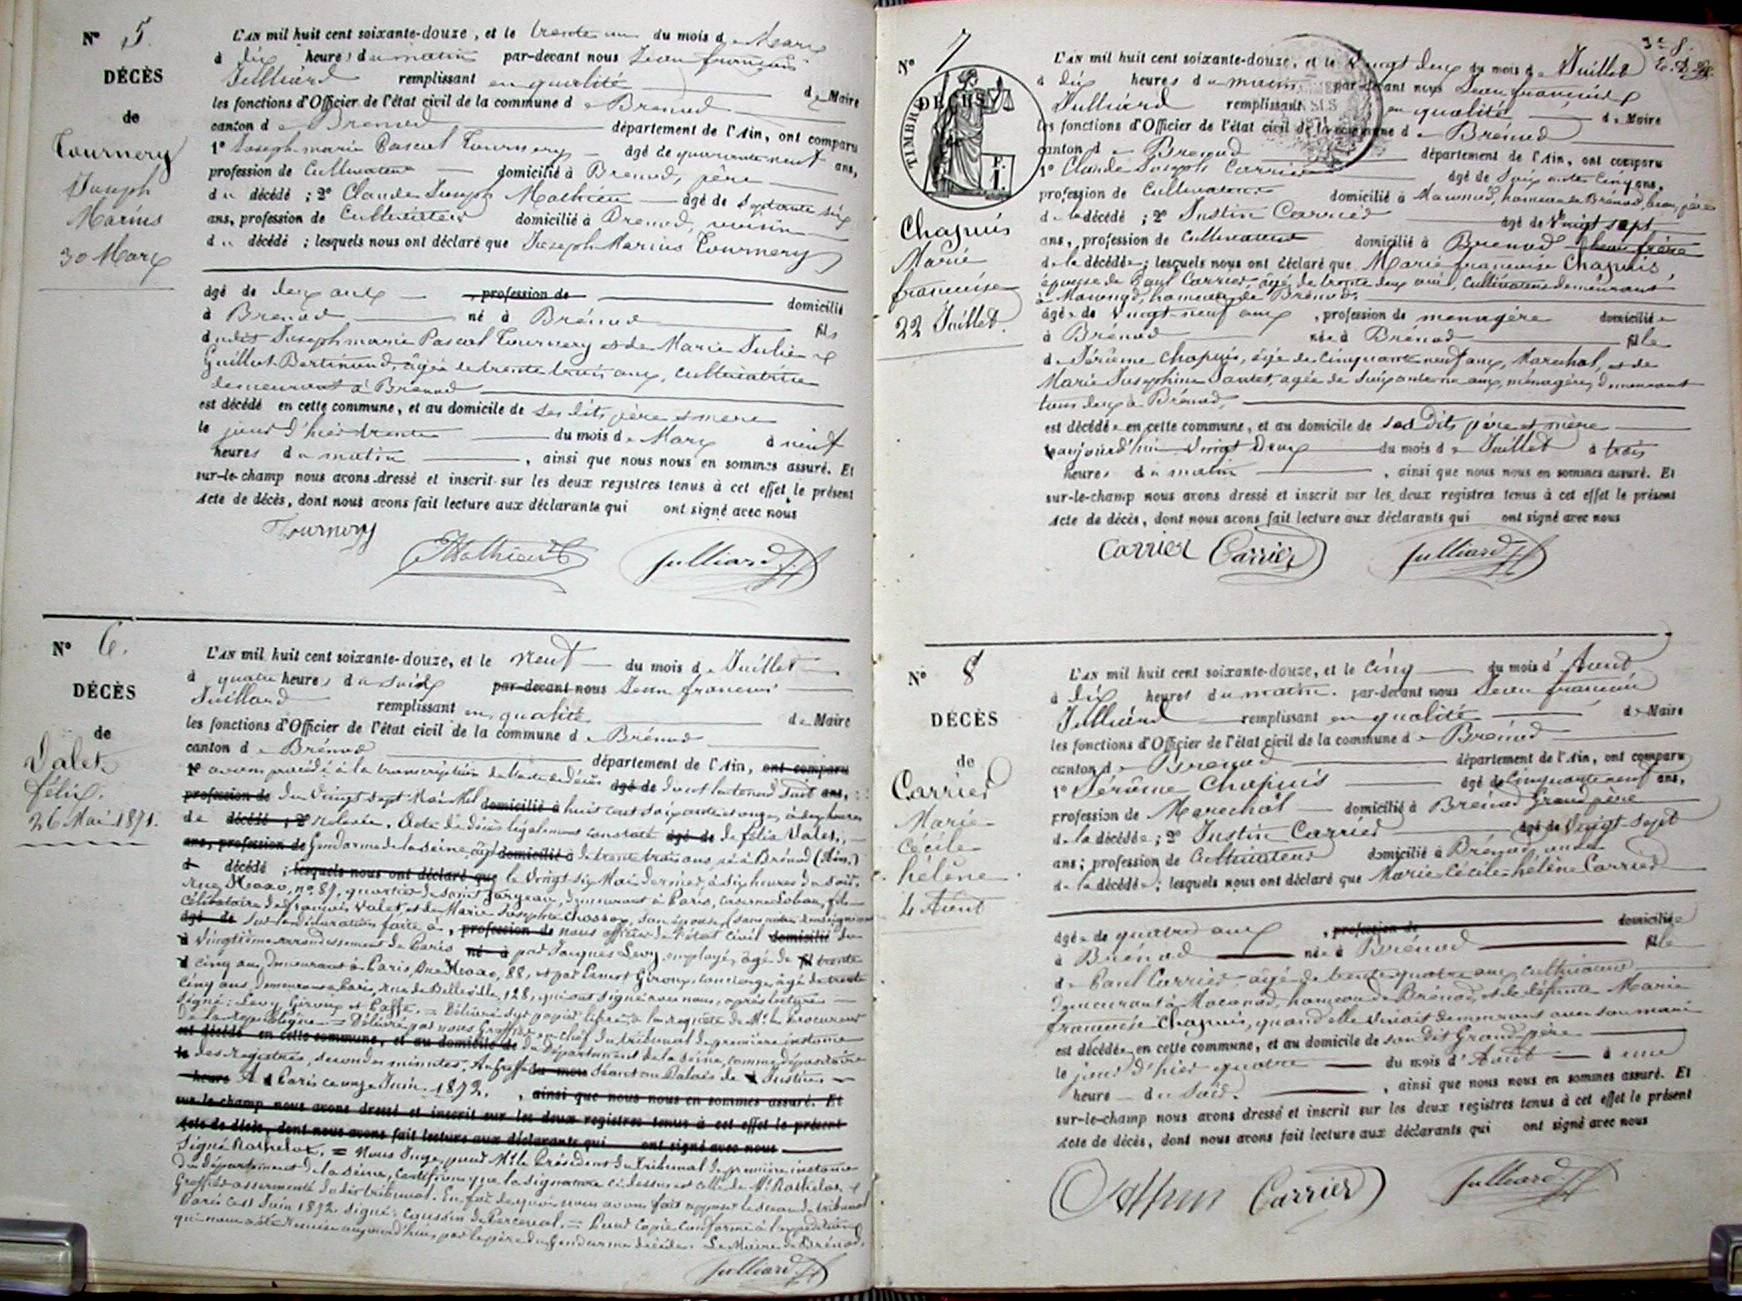 N° 5.
DÉCÈS
de
Tournery
Joseph
Marius
30 Mars
L'AN mil huit cent soixante-douze, et le trente un du mois de Mars
à dix heures du matin par-devant nous Jean françois
Julliard remplissant en qualité de Maire
les fonctions d'Officier de l'état civil de la commune de Brenod
canton de Brenod département de l'Ain, ont comparu
1° Joseph marie Pascal Tournery âgé de quarante neuf ans,
profession de Cultivateur domicilié à Brenod, père
du décédé ; 2° Claude Joseph Mathieu âgé de septante six
ans, profession de Cultivateur domicilié à Brenod, voisin
du décédé ; lesquels nous ont déclaré que Joseph Marius Tournery
âgé de deux ans profession de domicilié
à Brenod né à Brénod fils
dudit Joseph marie Pascal Tournery et de Marie Julie
Guillot Bertinand, âgée de trente trois ans, cultivatrice
demeurant à Brenod
est décédé en cette commune, et au domicile de ses dits père et mère
le jour d'hier trente du mois de Mars à neuf
heures du matin , ainsi que nous nous en sommes assuré. Et
sur-le-champ nous avons dressé et inscrit sur les deux registres tenus à cet effet le présent
acte de décès, dont nous avons fait lecture aux déclarants qui ont signé avec nous
Tournery Mathieu Julliard
N° 6.
DÉCÈS
de
Valet
félix.
26 Mai 1871.
L'AN mil huit cent soixante-douze, et le neuf du mois de Juillet
à quatre heures du soir par-devant nous Jean françois
Juillard remplissant en qualité de Maire
les fonctions d'Officier de l'état civil de la commune de Brénod
canton de Brénod département de l'Ain, ont comparu
N° avons procédé à la transcription de l'acte de décès âgé de dont la teneur suit ans, :
profession de du vingt sept Mai Mil domicilié à huit cent soixante et onze, à dix heures
de décédé ; 2° relevée. Acte de décès légalement constaté âgé de de félix Valet,
ans, profession de Gendarme de la Seine, âgé domicilié à de trente trois ans né à Brénod (Ain.)
d décédé ; lesquels nous ont déclaré que le vingt six Mai dernier, à six heures du soir,
rue Haxo, n° 89, quartier de saint fargeau, demeurant à Paris, caserne Lobau, fils
célibataire de françois Valet et de Marie Josephte Chosson, son épouse (sans autre renseignement
âgé de sur la déclaration faite à , profession de nous officier de l'état civil domicilié du
à vingtième arrondissement de Paris né à par Jacques Levy employé, âgé de fil trente
d cinq ans, demeurant à Paris, Rue Haxo, 88, et par Ernest Giroux, concierge, âgé de trente
cinq ans demeurant à Paris, rue de Belleville, 128, qui ont signé avec nous, après lecture
signé : Levy, Giroux et Caffe. = Délivré sur papier libre, à la requête de Mr. le Procureur
de la République. = Délivré par nous Greffier en chef du tribunal de première instance
est décédé en cette commune, et au domicile de du Département de la Seine, comme dépositaire
le des registres, secondes minutes, Au Greffe du mois séant au Palais de à Justice.
heure A Paris ce onze Juin 1872. , ainsi que nous nous en sommes assuré. Et
sur-le-champ nous avons dressé et inscrit sur les deux registres tenus à cet effet le présent
acte de décès, dont nous avons fait lecture aux déclarants qui ont signé avec nous
Signé Rathelot. = Nous Juge, pour Mr. le Président du tribunal de première instance
du département de la Seine, certifions que la signature ci dessus est celle de Mr. Rathelot,
Greffier assermenté du dit tribunal. En foi de quoi nous avons fait apposer le sceau du tribunal
Paris Juin 1872 signé : Caussin de Perceval. = Pour copie conforme à l'expédition
qui nous a été remise aujourd'hui, par le père du Gendarme décédé. Le Maire de Brénod.
Julliard
N° 7
TIMBRE
DÉCÈS
Chapuis
Marie
françoise
22 Juillet.
L'AN mil huit cent soixante-douze, et le vingt deux du mois de Juillet
à dix heures du matin par-devant nous Jean françois
Julliard remplissant en qualité de Maire
les fonctions d'Officier de l'état civil de la commune de Brénod
canton de Brenod département de l'Ain, ont comparu
1° Claude Joseph Carrier âgé de soixante cinq ans,
profession de Cultivateur domicilié à Macconod, hameau de Brénod, beau père
de la décédé ; 2° Justin Carrier âgé de vingt sept
ans, profession de Cultivateur domicilié à Brenod beau frère
de la décédée ; lesquels nous ont déclaré que Marie françoise Chapuis,
épouse de Paul Carrier âgé de trente deux ans, cultivateur demeurant
à Macconod, hameau de Brénod,
âgée de vingt neuf ans , profession de ménagère domiciliée
à Brénod née à Brénod fille
de Jérôme Chapuis, âgé de cinquante neuf ans, Marechal, et de
Marie Josephine Santet, agée de soixante ans, ménagère, demeurant
tous deux à Brénod,
est décédée en cette commune, et au domicile de ses dits père et mère
aujourd'hui vingt deux du mois de Juillet à trois
heures du matin , ainsi que nous nous en sommes assuré. Et
sur-le-champ nous avons dressé et inscrit sur les deux registres tenus à cet effet le présent
acte de décès, dont nous avons fait lecture aux déclarants qui ont signé avec nous
Carrier Carrier Julliard
N° 8
DÉCÈS
de
Carrier
Marie
Cécile
hélène
4 Août
L'AN mil huit cent soixante-douze, et le cinq du mois d'Août
à dix heures du matin. par-devant nous Jean françois
Julliard remplissant en qualité de Maire
les fonctions d'Officier de l'état civil de la commune de Brénod
canton de Brenod département de l'Ain, ont comparu
1° Jérôme Chapuis âgé de cinquante neuf ans,
profession de Marechal domicilié à Brenod Grand père
de la décédée ; 2° Justin Carrier âgé de vingt sept
ans ; profession de Cultivateur domicilié à Brénod, oncle
de la décédée ; lesquels nous ont déclaré que Marie Cécile hélène Carrier
âgée de quatre ans , profession de domiciliée
à Brénod née à Brénod fille
de Paul Carrier âgé de trente quatre ans cultivateur
demeurant à Macconod, hameau de Brénod, et de défunte Marie
françoise Chapuis, quand elle vivait demeurant avec son mari
est décédée en cette commune, et au domicile de son dit Grand père
le jour d'hier quatre du mois d'Août à une
heure du soir. , ainsi que nous nous en sommes assuré. Et
sur-le-champ nous avons dressé et inscrit sur les deux registres tenus à cet effet le présent
acte de décès, dont nous avons fait lecture aux déclarants qui ont signé avec nous
Carrier Julliard